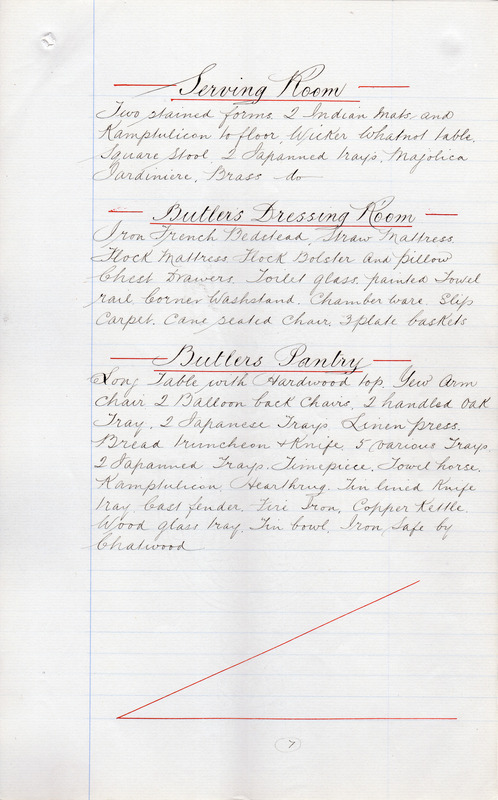 Serving Room
Two stained forms. 2 Indian Mats and
Kamptulicon to floor, Wicker Whatnot table.
Square Stool. 2 Japanned trays. Majolica
Jardiniere. Brass do
Butlers Dressing Room
Iron French Bedstead, Straw Mattress.
Flock Mattress Flock Bolster and pillow
Chest Drawers. Toilet glass. painted Towel
rail Corner Washstand. Chamber ware. Slip
Carpet. Cane seated Chair. 3 plate baskets
Butlers Pantry
Long Table with Hardwood top. Yew Arm
chair 2 Balloon back Chairs, 2 handled Oak
Tray. 2 Japanese Trays Linen press.
Bread truncheon & Knife. 5 various Trays.
2 Japanned Trays. Timepiece. Towel horse.
Kamptulicon Hearthrug. Tin lined Knife
tray. Cast fender. Fire Iron. Copper Kettle.
Wood glass tray, Tin bowl, Iron Safe by
Chatwood
7